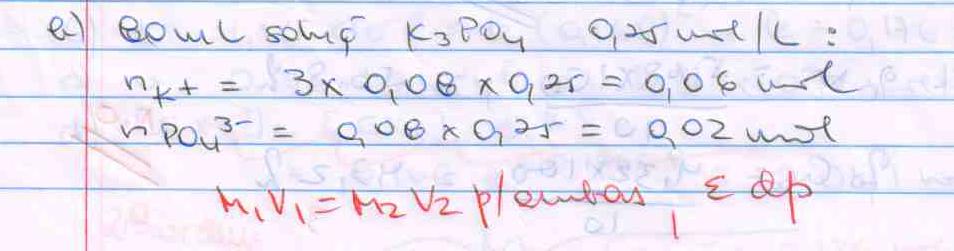 a) 80 mL solução K3PO4 0,25 mol/L :
nK+ = 3x 0,08 x 0,25 = 0,06 mol
nPO4³⁻ = 0,08 x 0,25 = 0,02 mol
M1V1 = M2V2 p/ ambas, e dp